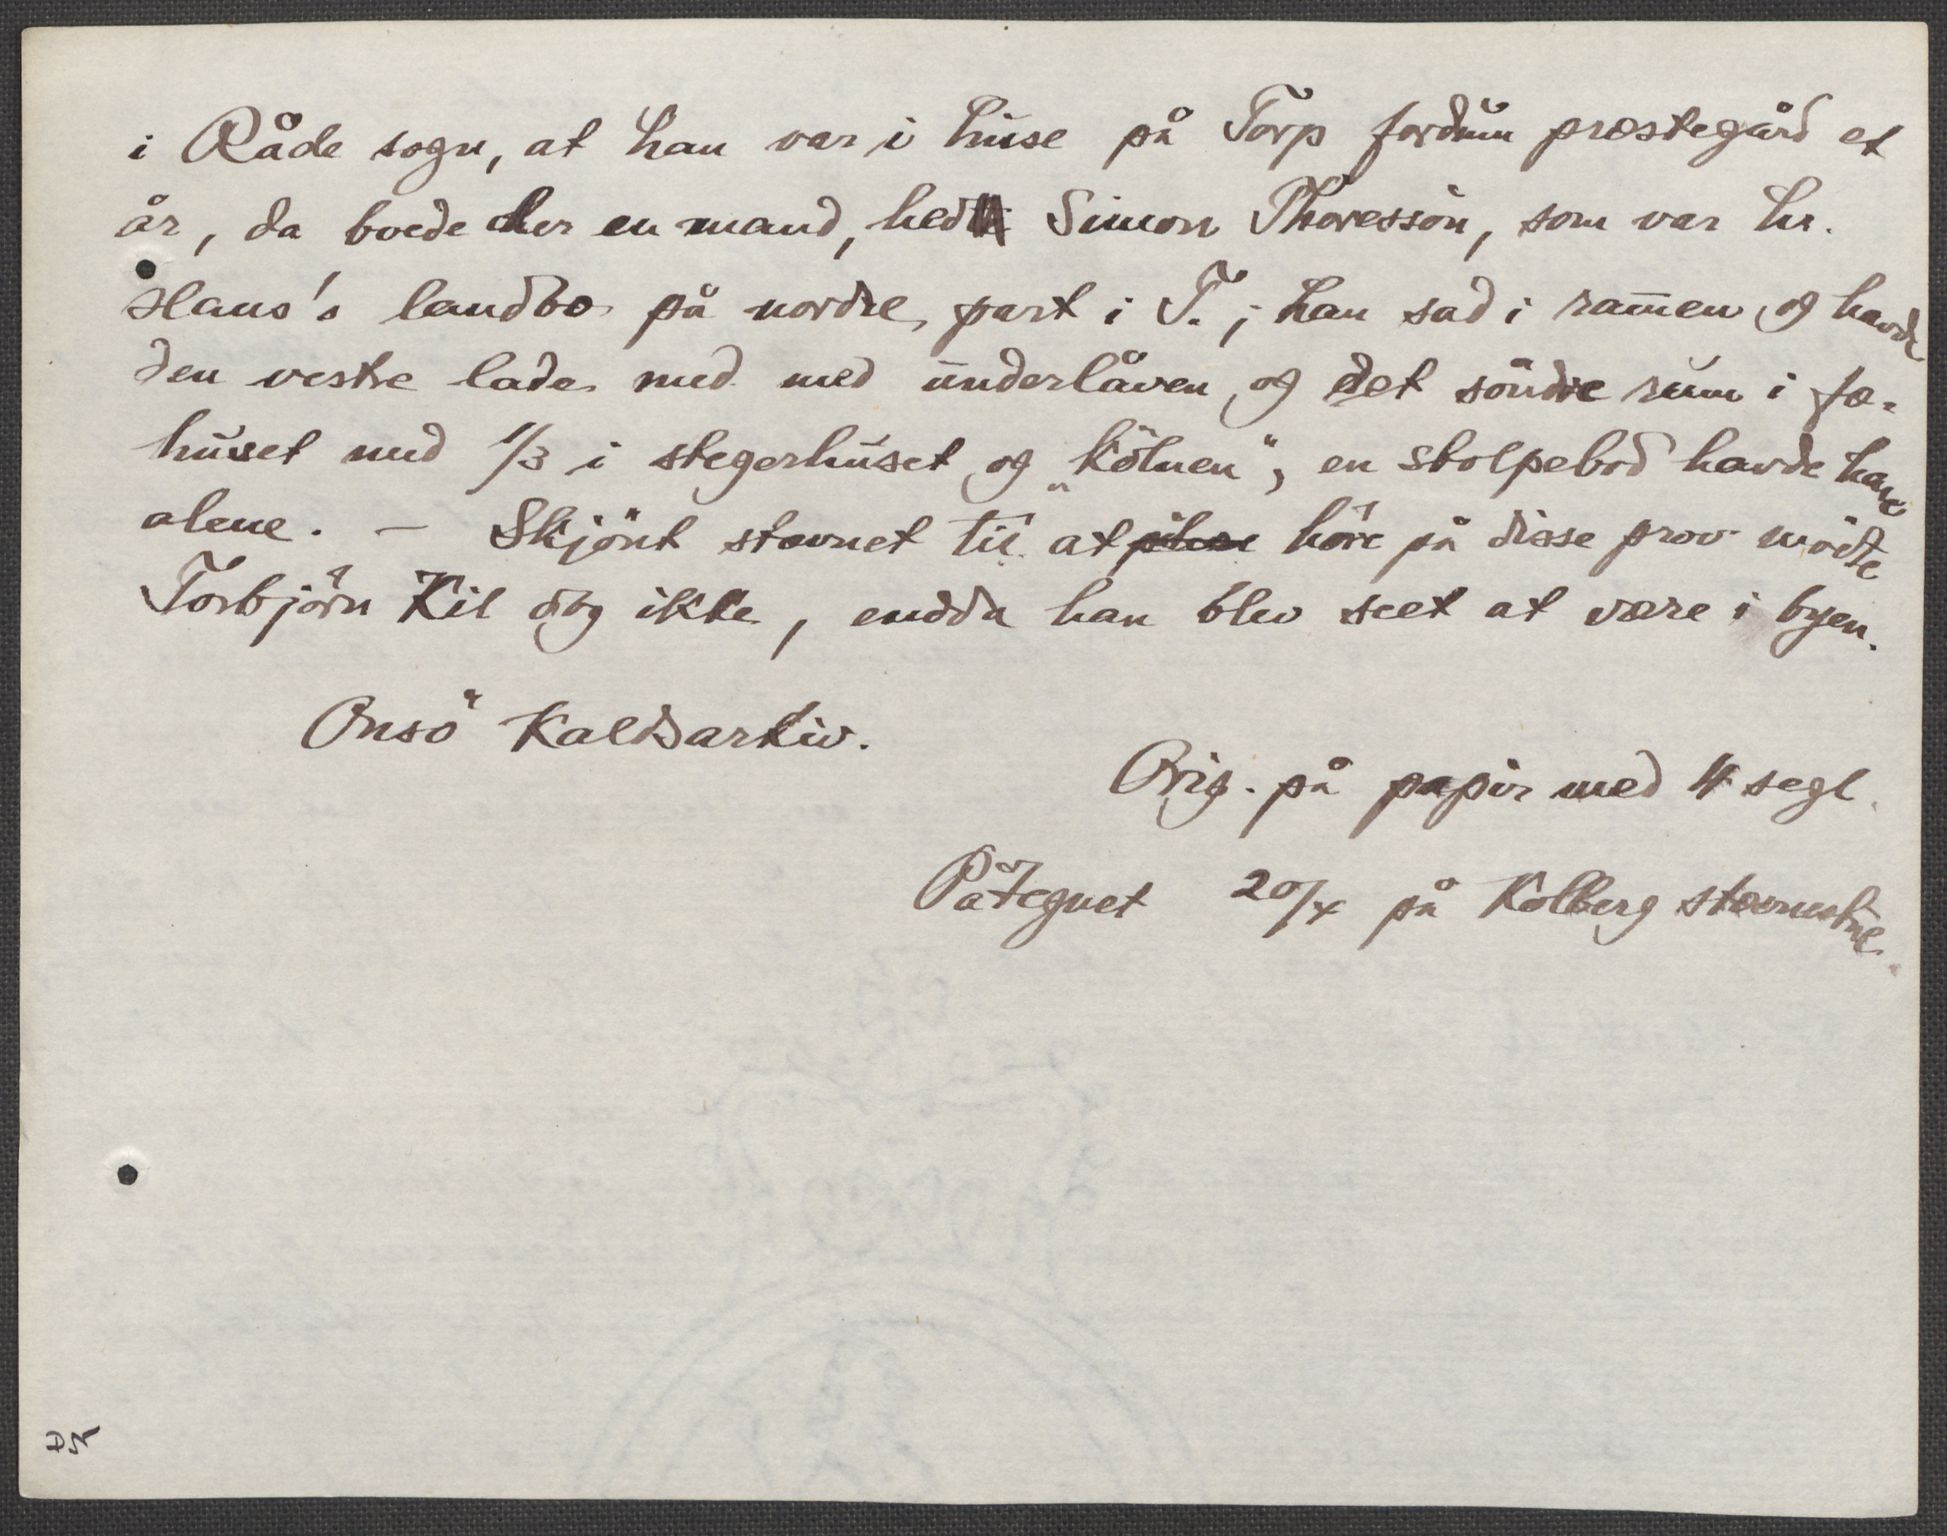 i Råde sogn, at han var i huse på Torp fordum præstegård et
år, da boede der en mand, hed Simon Thoressön, som var hr.
Hans's landbo på nordre part i T.; han sad i ram̄en og havde
den vestre lade med med underlåven og det söndre rum i fæ-
huset med 1/3 i stegerhuset og „kölnen", en stolpebod havde han
alene. — Skjönt stævnet til at höre på disse prov mödte
Torbjörn Kil dog ikke, endda han blev seet at være i byen.
Onsö Kaldsarkiv.
Orig. på papir med 4 segl.
Påtegnet 20/4 på Kolberg stævnestue.